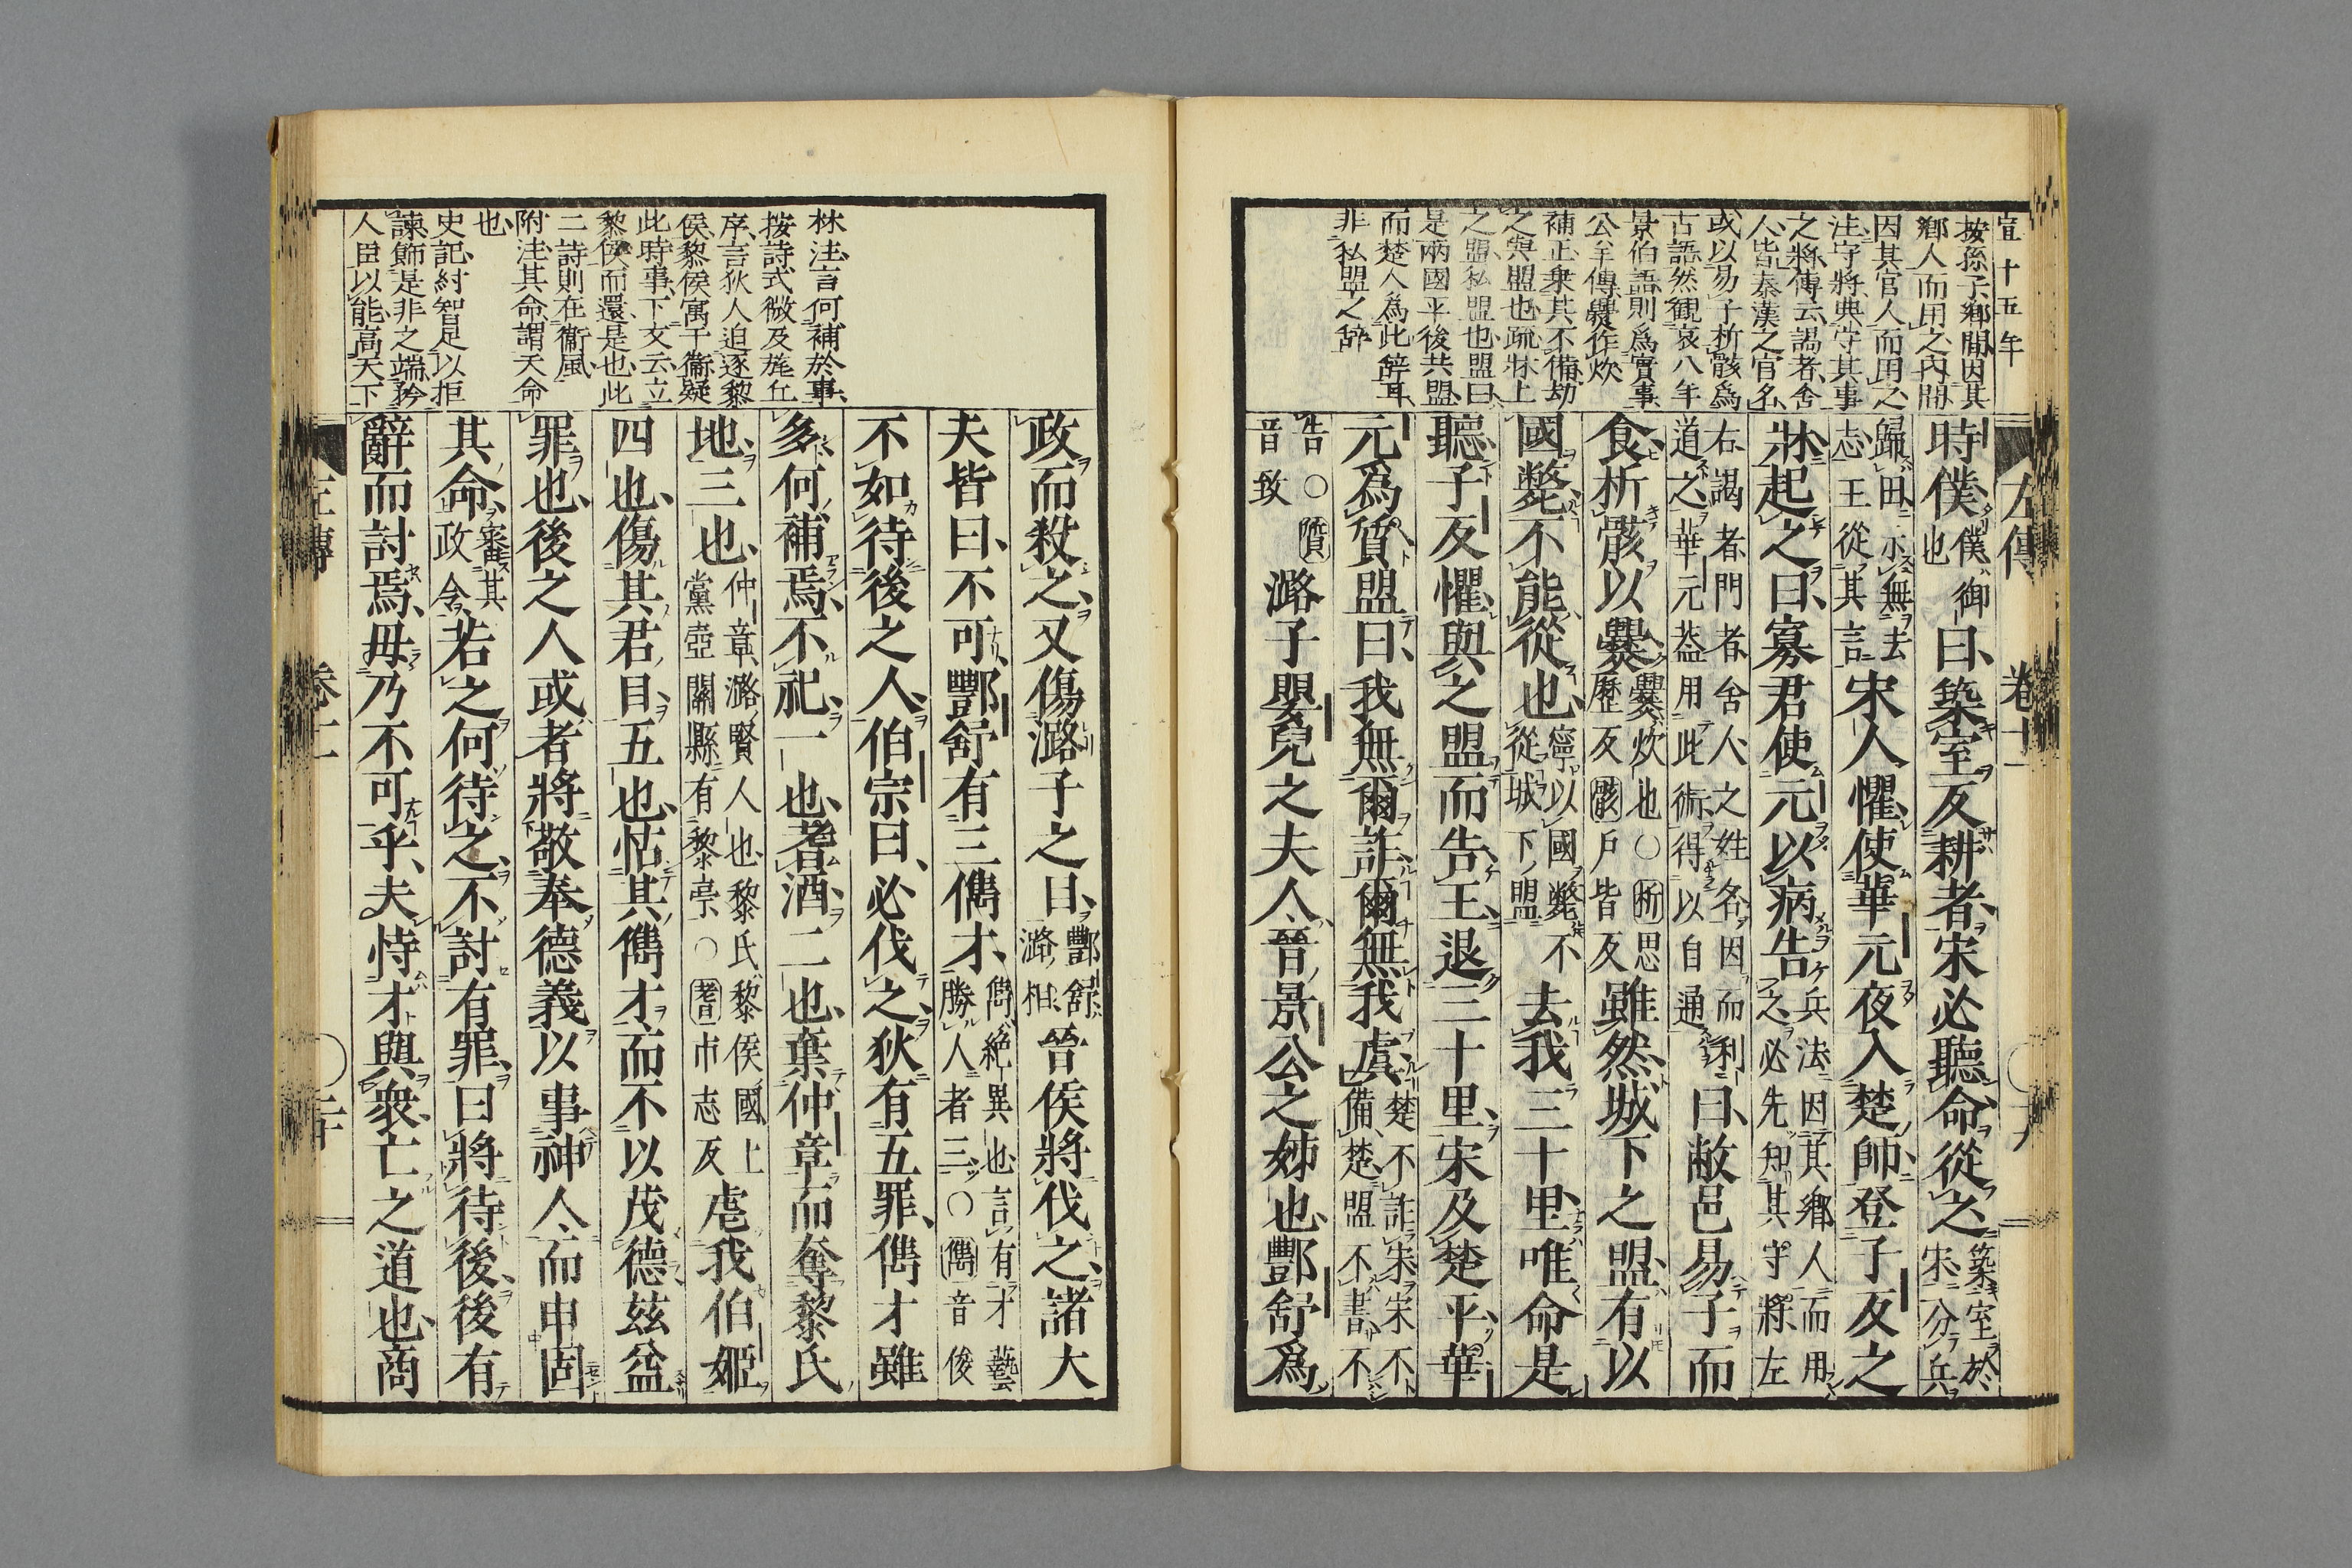 宣十五年
按孫子鄉間因其
鄉人而用之内間
因其官人而用之
注守將典守其事
之將傳云謁者舍
人皆秦漢之官名
或以易子析骸爲
古語然観哀八年
景伯語則爲實事
公羊傳爨作炊
補正乘其不備劫
之與盟也疏牀上
之盟私盟也盟曰
是兩國平後共盟
而楚人爲此辭耳
非私盟之辭
左傳 卷十一 〇十九
時僕僕御也曰築室反耕者宋必聽命從之築室於宋分兵
歸田示無去志王從其言宋人懼使華元夜入楚師登子反之
牀起之曰寡君使元以病告兵法因其鄉人而用之必先知其守將左
右謁者門者舍人之姓名因而利道之華元葢用此術得以自通曰敝邑易子而
食析骸以爨爨炊也〇析思歷反骸戶皆反雖然城下之盟有以
國斃不能從也寧以國斃不從城下盟去我三十里唯命是
聽子反懼與之盟而告王退三十里宋及楚平華
元爲質盟曰我無爾詐爾無我虞楚不詐宋宋不備楚盟不書不
告〇質音致潞子嬰兒之夫人晉景公之姊也酆舒爲
林注言何補於事
按詩式微及旄丘
序言狄人迫逐黎
侯黎侯寓于衞疑
此時事下文云立
黎侯而還是也此
二詩則在衞風
附注其命謂天命
也
史記紂智足以拒
諫飾是非之端矜
人臣以能高天下
政而殺之又傷潞子之目酆舒潞相晉侯將伐之諸大
夫皆曰不可酆舒有三儁才儁絶異也言有才藝勝人者三〇儁音俊
不如待後之人伯宗曰必伐之狄有五罪儁才雖
多何補焉不祀一也耆酒二也棄仲章而奪黎氏
地三也仲章潞賢人也黎氏黎侯國上黨壺關縣有黎亭〇耆市志反虐我伯姬
四也傷其君目五也怙其儁才而不以茂德茲益
罪也後之人或者將敬奉德義以事神人而申固
其命審其政令若之何待之不討有罪曰將待後後有
辭而討焉毋乃不可乎夫恃才與衆亡之道也商
左傳 卷十一 〇二十